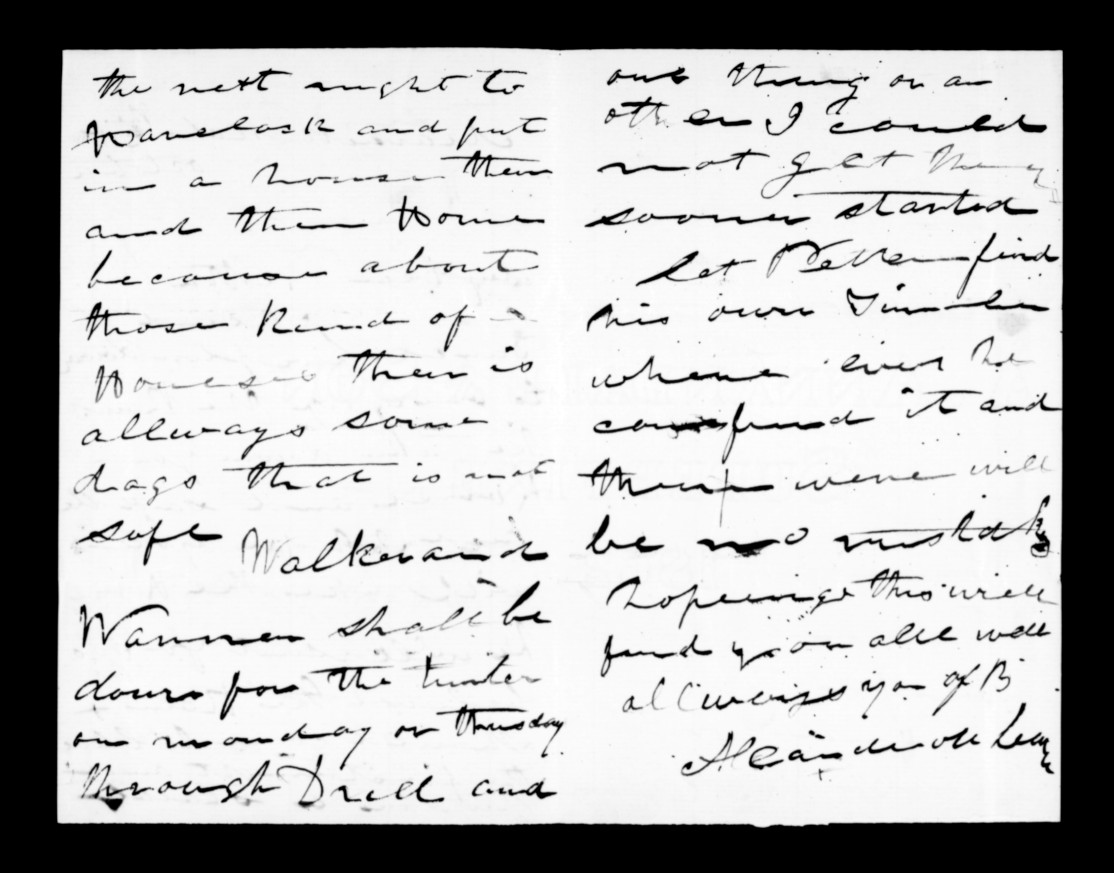 the next night to
Havelock and put
in a house then
and then Home
because about
those Kind of
Houeses ther is
allways some
drags that is not
safe Walker and
Warmen shall be
doun for the timber
on monday or thusday
through Drill and
one thing on an
other I could
not get they
sooner started
Let Petter find
his own Timber
where ever he
can find it and
then were will
be no mistake
hopeinge this will
find you all well
allways yor of B
Aleander